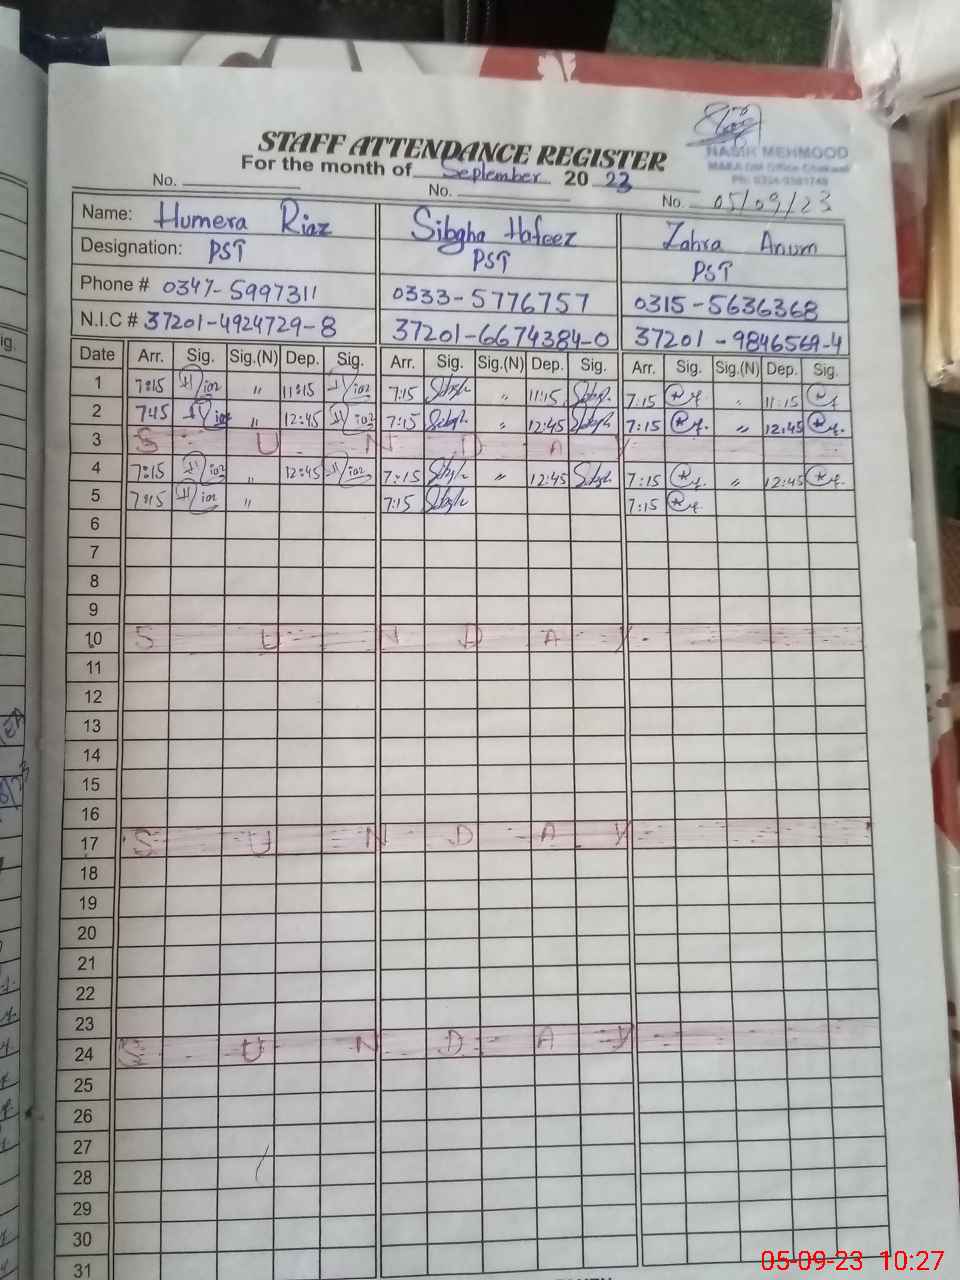 STAFF ATTENDANCE REGISTER
For the month of September 20 23
NASIR MEHMOOD
No. No. No. 05/09/23
Name: Humera Riaz Sibgha Hafeez Zahra Anum
Designation: PST PST PST
Phone # 0347-5997311 0333-5776757 0315-5636368
N.I.C # 37201-4924729-8 37201-6674384-0 37201-9846569-4
Date Arr. Sig. Sig.(N) Dep. Sig. Arr. Sig. Sig.(N) Dep. Sig. Arr. Sig. Sig.(N) Dep. Sig.
1 7:15 " 11:15 7:15 " 11:15 7:15 " 11:15
2 745 " 12:45 7:15 " 12:45 7:15 " 12:45
3 S U N D A Y
4 7:15 " 12:45 7:15 " 12:45 7:15 " 12:45
5 7:15 " 7:15 7:15
6
7
8
9
10 S U N D A Y
11
12
13
14
15
16
17 S U N D A Y
18
19
20
21
22
23
24 S U N D A Y
25
26
27
28
29
30
31
05-09-23 10:27